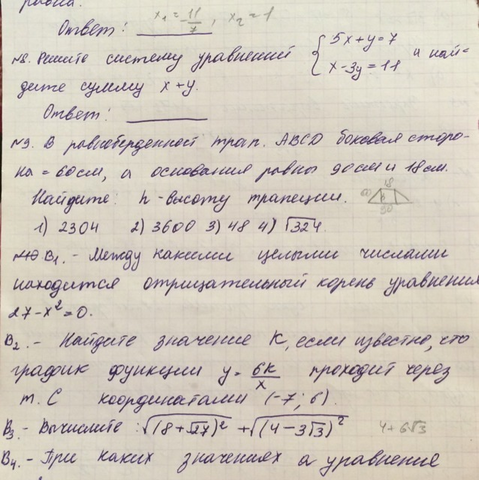 Ответ: x₁ = -11/7, x₂ = 1
№8. Решите систему уравнений { 5x+y=7 x-3y=11 и най-
дите сумму x+y.
Ответ:
№9. В равнобедренной трап. ABCD боковая сторо-
на = 60 см, а основания равны 90 см и 18 см.
Найдите: h-высоту трапеции.
1) 2304 2) 3600 3) 48 4) √324.
B₁. - Между какими целыми числами
находится отрицательный корень уравнения
27-x²=0.
B₂. - Найдите значение K, если известно, что
график функции y = 6k/x проходит через
т. С координатами (-7; 6).
B₃. - Вычислите: √(18+√27)² + √(4-3√3)² 4+6√3
B₄. - При каких значениях a уравнение